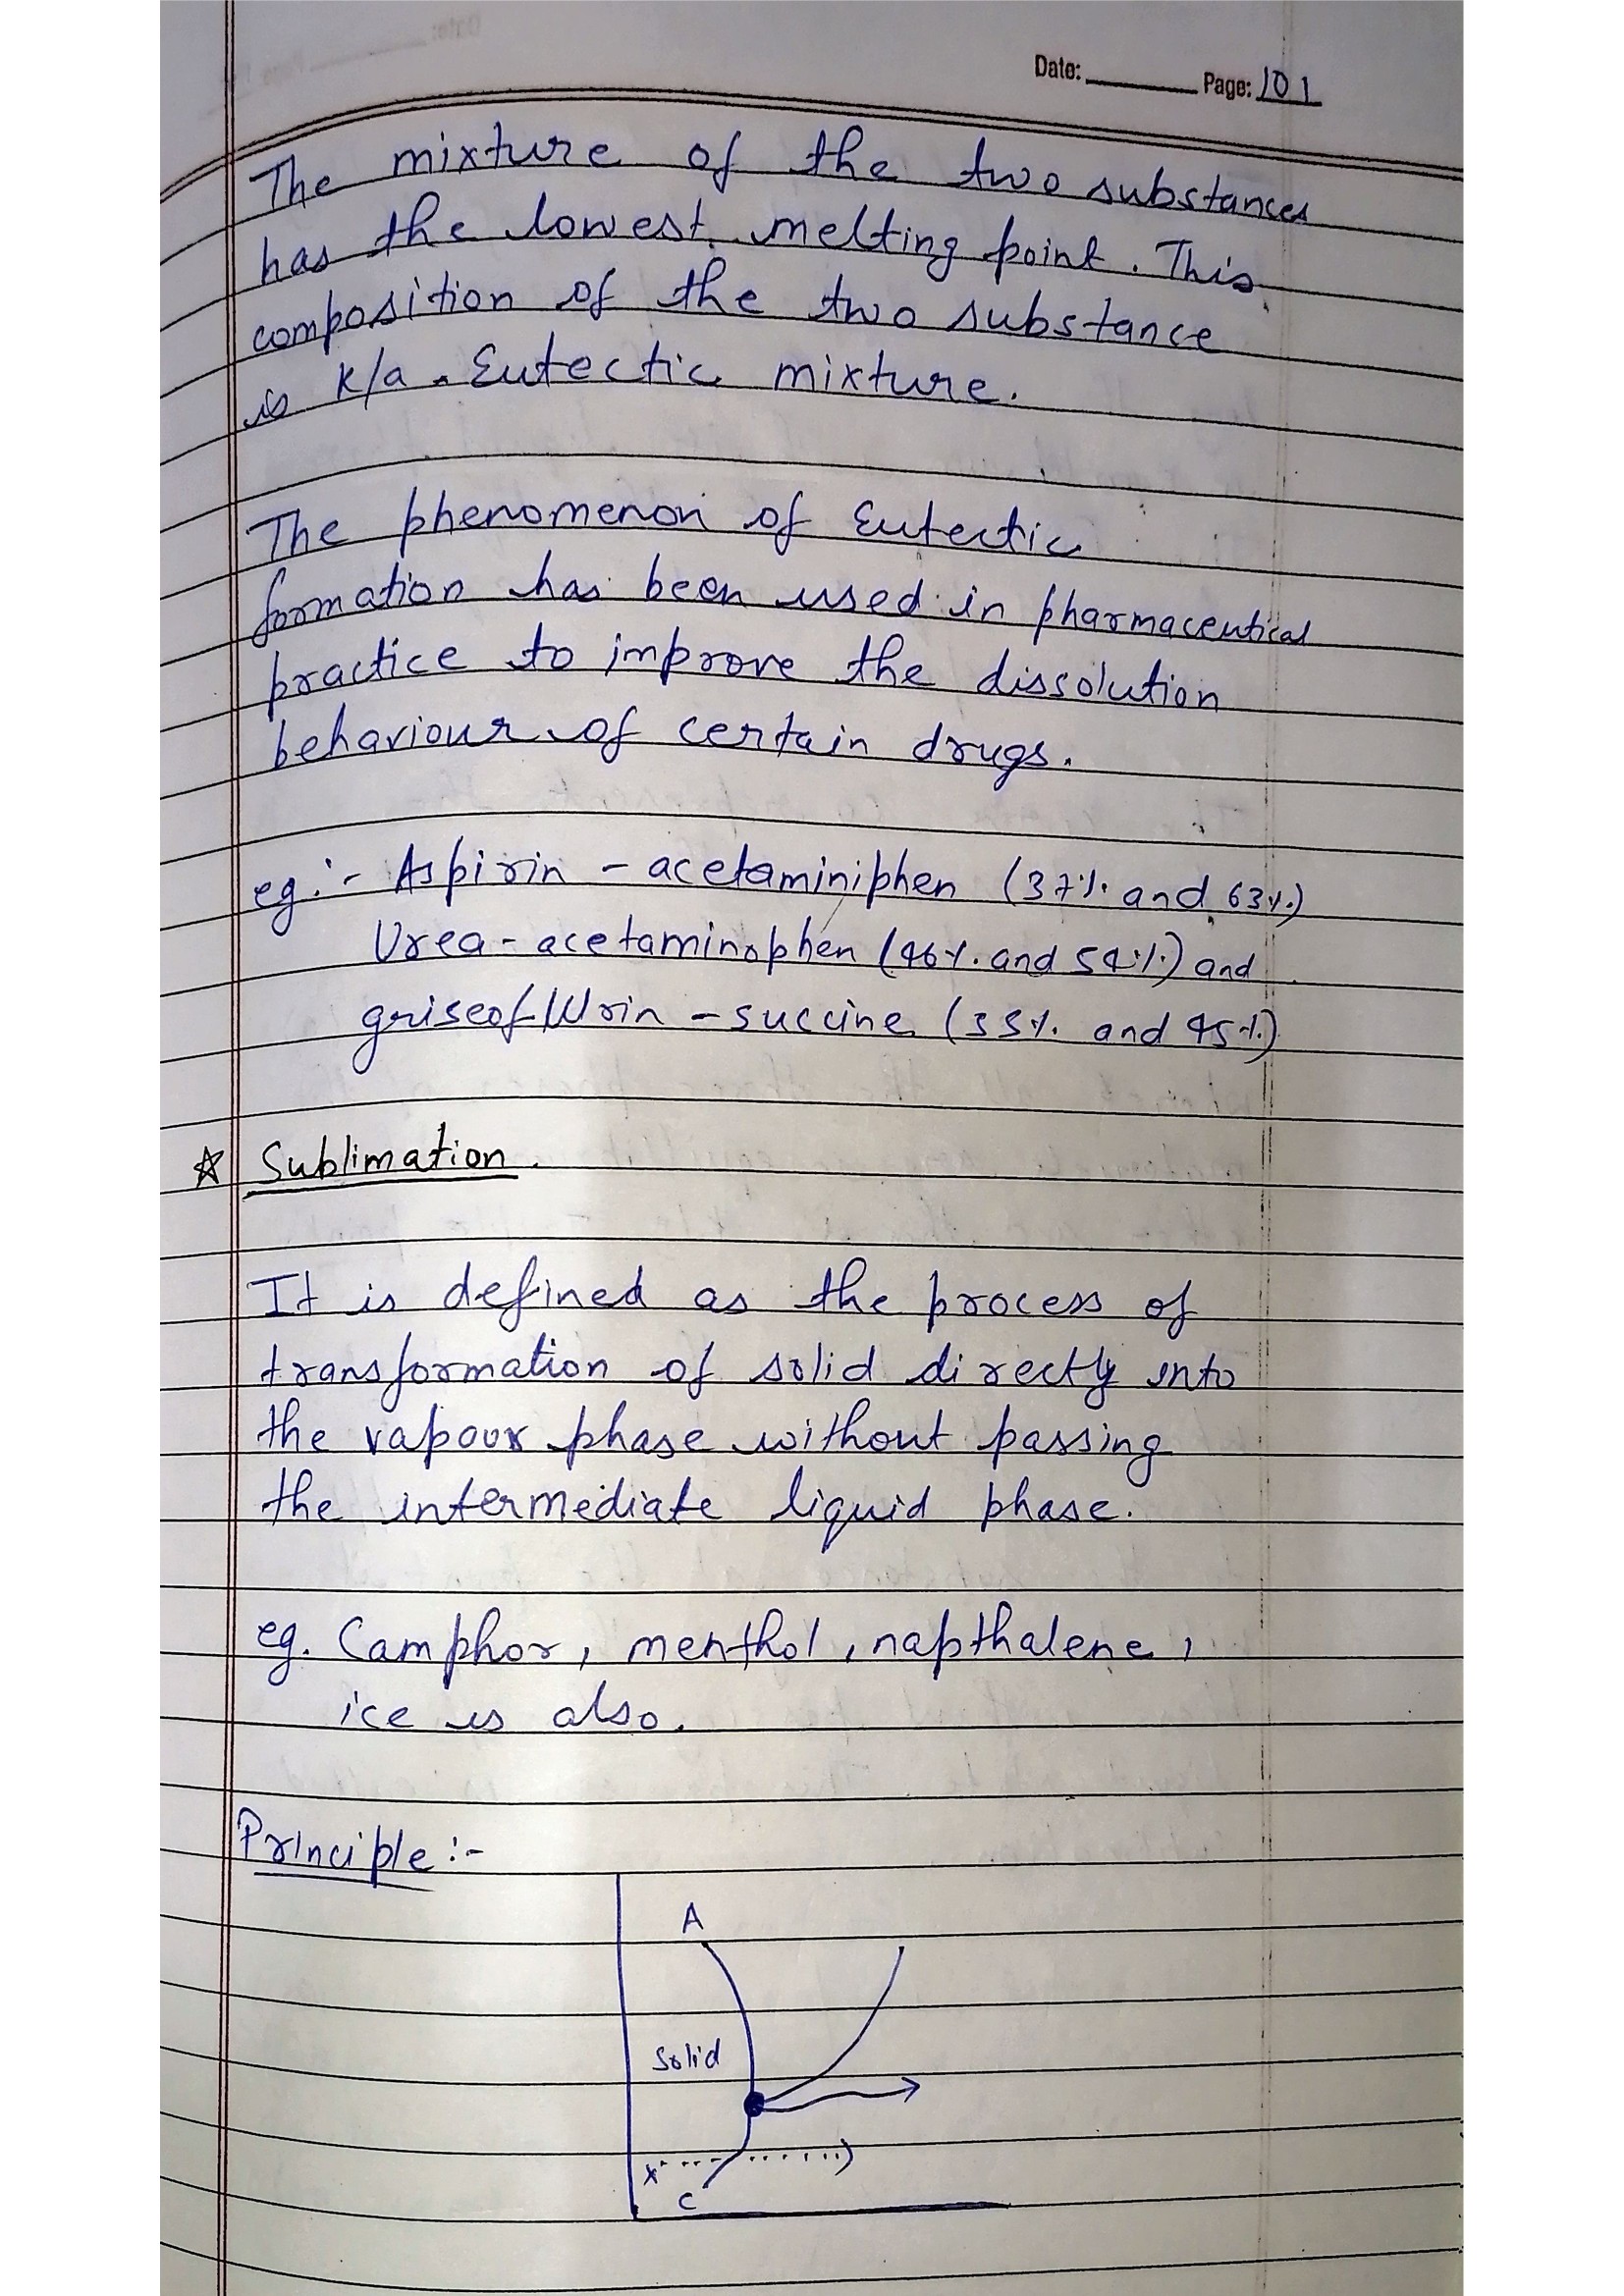 Date: Page: 101
The mixture of the two substances
has the lowest melting point. This
composition of the two substance
is k/a Eutectic mixture.
The phenomenon of Eutectic
formation has been used in pharmaceutical
practice to improve the dissolution
behaviour of certain drugs.
eg:- Aspirin - acetaminiphen (37% and 63%)
Urea - acetaminophen (46% and 54%) and
griseofulvrin - succine (55% and 45%)
☆ Sublimation
It is defined as the process of
transformation of solid directly into
the vapour phase without passing
the intermediate liquid phase.
eg. Camphor, menthol, napthalene,
ice is also.
Principle :-
A
Solid
x
C